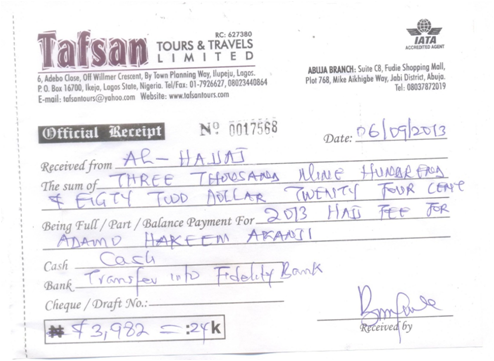 RC: 627380
Tafsan TOURS & TRAVELS
LIMITED
IATA
ACCREDITED AGENT
6, Adebo Close, Off Willmer Crescent, By Town Planning Way, Ilupeju, Lagos.
P. O. Box 16700, Ikeja, Lagos State, Nigeria. Tel/Fax: 01-7926627, 08023440864
E-mail: tafsantours@yahoo.com Website: www.tafsantours.com
ABUJA BRANCH: Suite C8, Fudie Shopping Mall,
Plot 768, Mike Aikhigbe Way, Jabi District, Abuja.
Tel: 08037872019
Official Receipt Nº 0017568
Date: 06/09/2013
Received from AL-HAJJAJ
The sum of THREE THOUSAND NINE HUNDRED
& EIGTY TWO DOLLAR TWENTY FOUR CENT
Being Full / Part / Balance Payment For 2013 HAJJ FEE FOR
ADAMO HAKEEM AKANJI
Cash Cash
Bank Transfer into Fidelity Bank
Cheque / Draft No.:
₦ $3,982 = :24 k
Received by